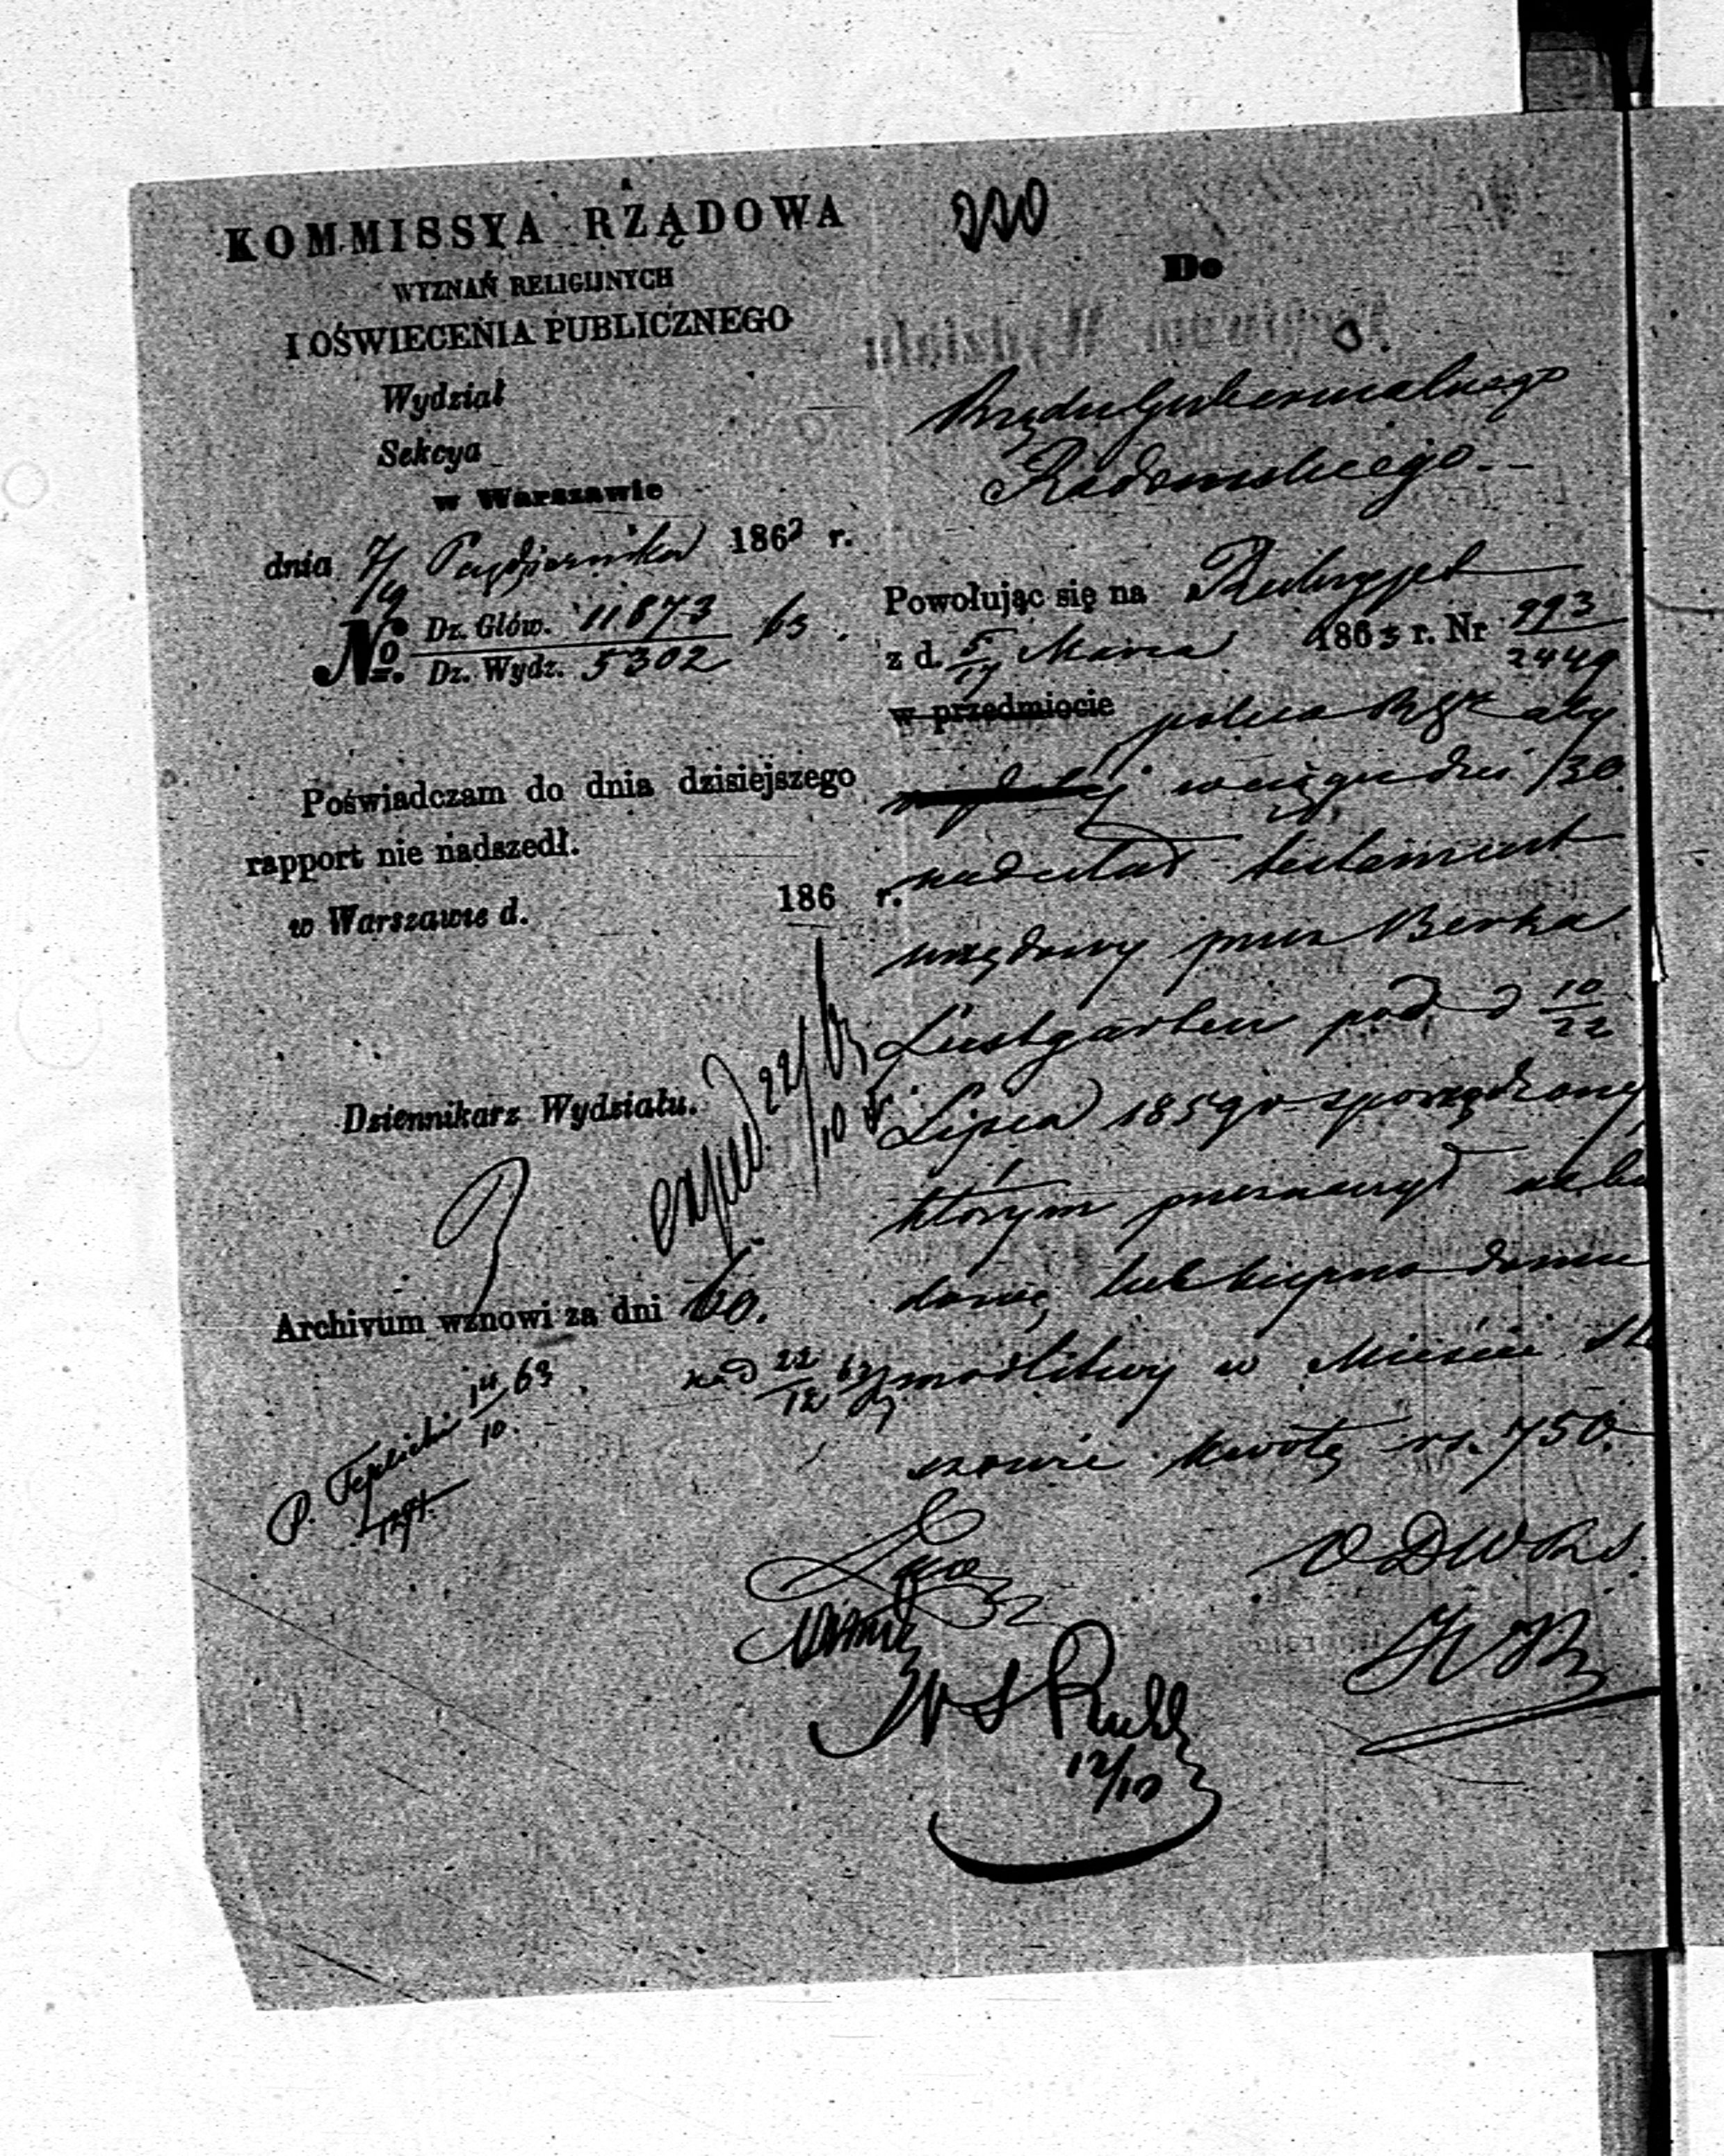 220
KOMMISSYA RZĄDOWA
WYZNAŃ RELIGIJNYCH
I OŚWIECENIA PUBLICZNEGO
Wydział
Sekcya
w Warszawie
dnia 7/19 Października 1863 r.
No. Dz. Głów. 11873 / Dz. Wydz. 5302 63.
Poświadczam do dnia dzisiejszego
rapport nie nadszedł.
w Warszawie d. 186 r.
Dziennikarz Wydziału.
exped. 22/10 63
Archivum wznowi za dni 60.
na d 22/12 63
P. Teplicki 14/10 63.
Do
Rządu Gubernialnego
Radomskiego.
Powołując się na Reskrypt
z d. 5/17 Marca 1863 r. Nr 993/2449
w przedmiocie poleca aby
w ciągu dni 30
nadesłał testament
urzędowy przez Berka
Lustgarten pod d 10/22
Lipca 1859 r. sporządzony
którym przeznaczył na bu
dowę lub kupno domu
modlitwy w Mieście
szowie kwotę rs. 750.
12/10